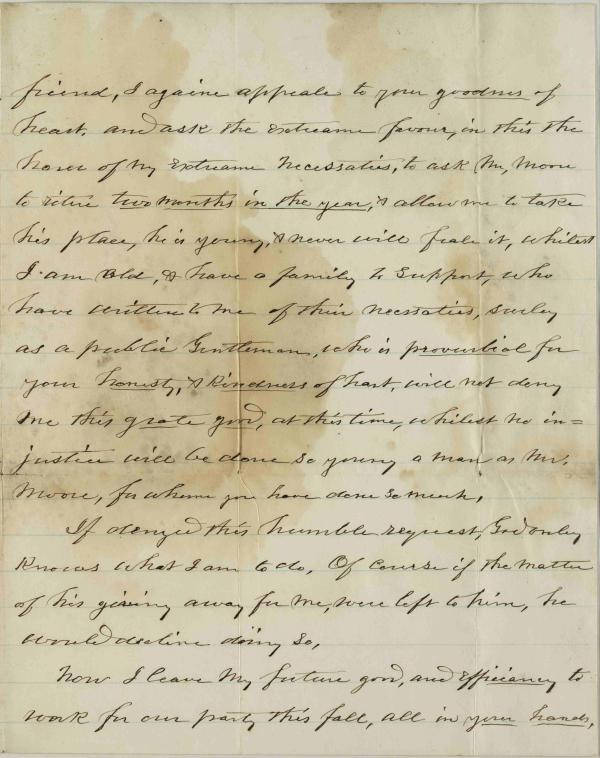 friend, I againe appeale to your goodness of
heart. and ask the extreame favour, in this the
hour of my extreame necessaties, to ask Mr, Moore
to retire two months in the year, & allow me to take
his place, he is young, & never will feale it, whilest
I am old, & have a family to support, who
have written to me of their necessaties, surley
as a public Gentleman, who is proverbial for
your honesty, & kindness of hart, will not deny
me this grate good, at this time, whilest no in=
justice will be done so young a man as Mr.
Moore, for whome you have done so much,
If denyed this humble request, God only
knows what I am to do, Of course if the matter
of his giving away for me, were left to him, he
would decline doing so,
Now I leave my future good, and efficiancy to
work for our party this fall, all in your hands,